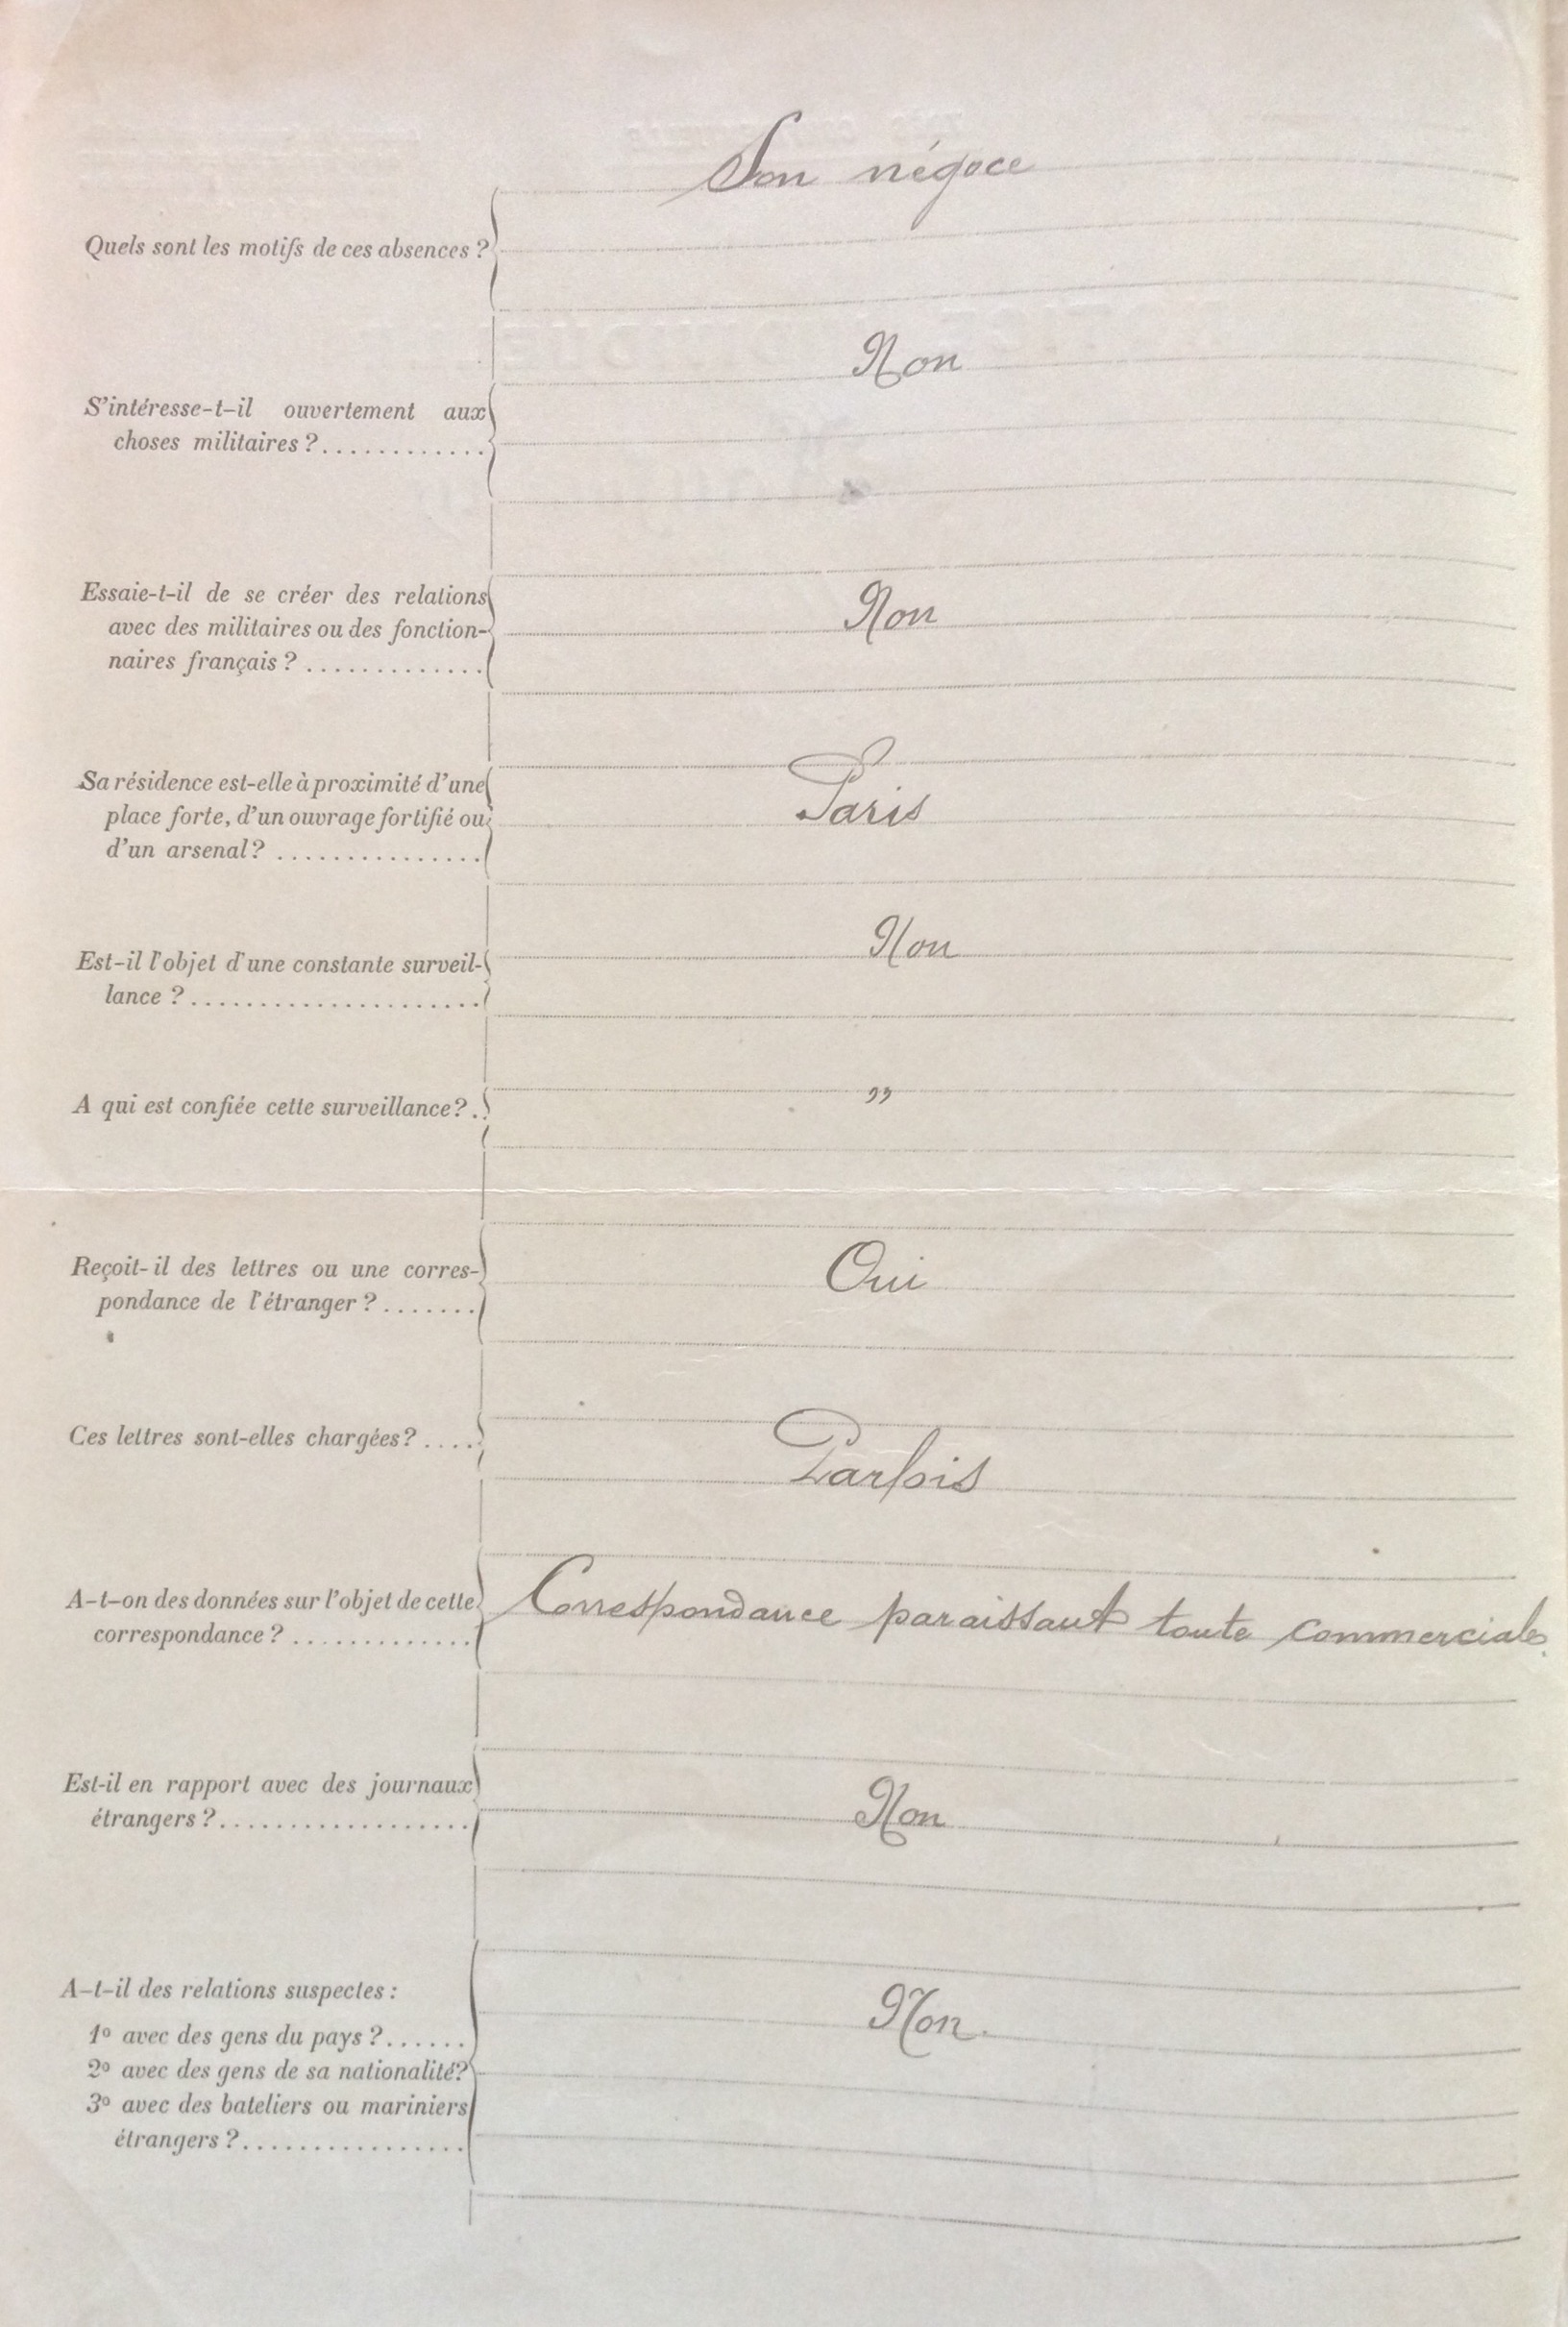 Son négoce
Quels sont les motifs de ces absences ?
Non
S'intéresse-t-il ouvertement aux
choses militaires ?............
Essaie-t-il de se créer des relations
avec des militaires ou des fonction-
naires français ? .............
Non
Sa résidence est-elle à proximité d'une
place forte, d'un ouvrage fortifié ou
d'un arsenal? ...............
Paris
Est-il l'objet d'une constante surveil-
lance ?.....................
Non
A qui est confiée cette surveillance?.
"
Reçoit-il des lettres ou une corres-
pondance de l'étranger ?.......
Oui
Ces lettres sont-elles chargées? ....
Parfois
A-t-on des données sur l'objet de cette
correspondance ? .............
Correspondance paraissant toute commerciale.
Est-il en rapport avec des journaux
étrangers ?..................
Non
A-t-il des relations suspectes :
1º avec des gens du pays ?......
2º avec des gens de sa nationalité?
3º avec des bateliers ou mariniers
étrangers ?................
Non.